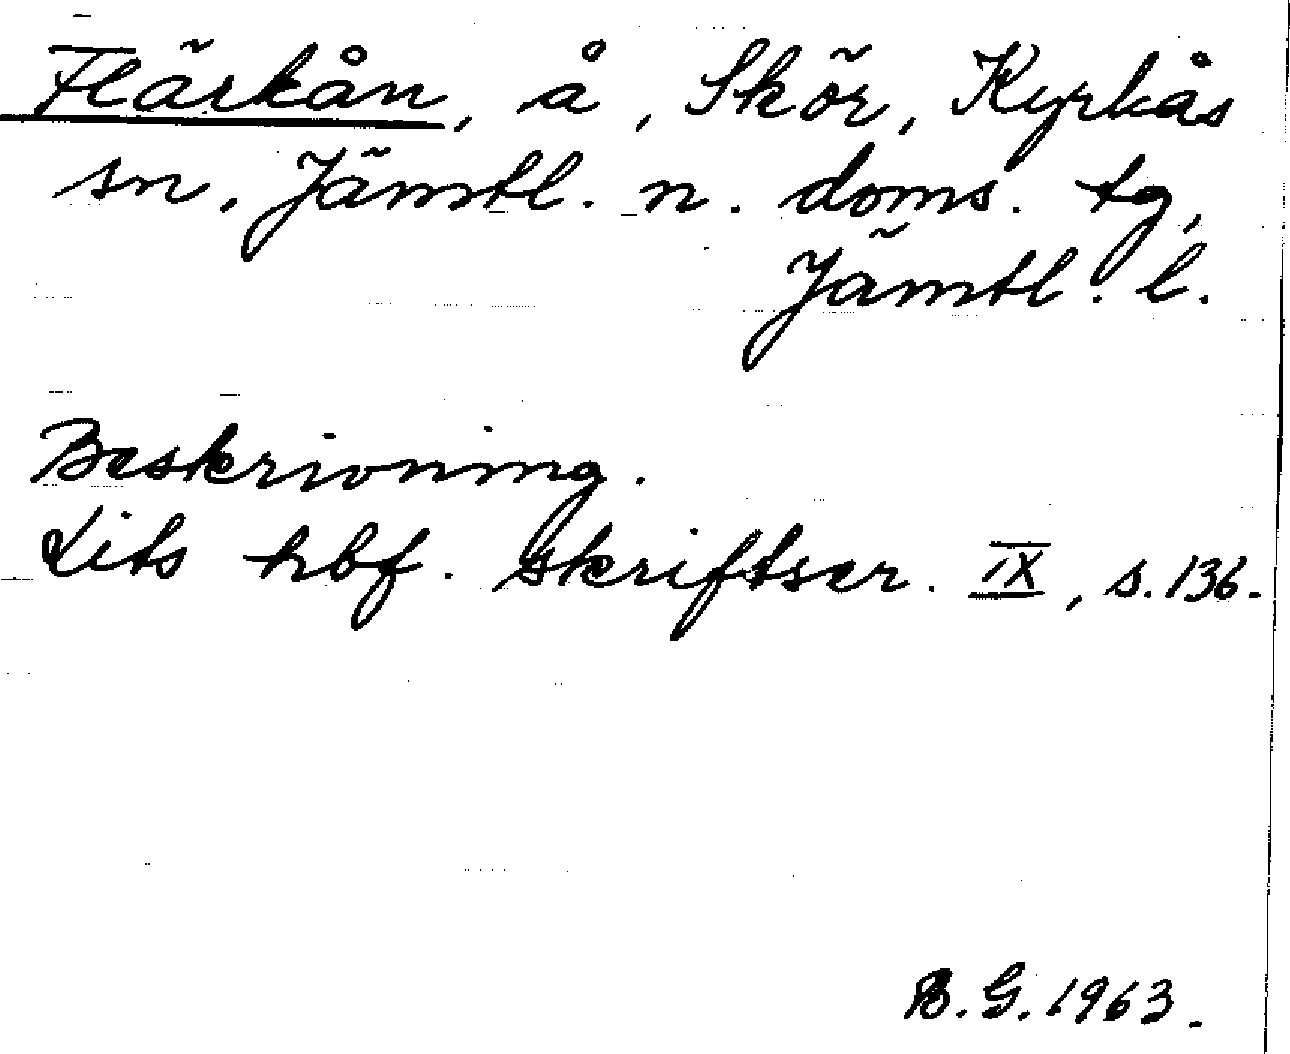 Flärkån, å, Skör, Kyrkås
sn, Jämtl. n. doms. tg,
Jämtl. l.
Beskrivning.
Lits hbf. skriftser. IX, s. 136.
B. G. 1963.